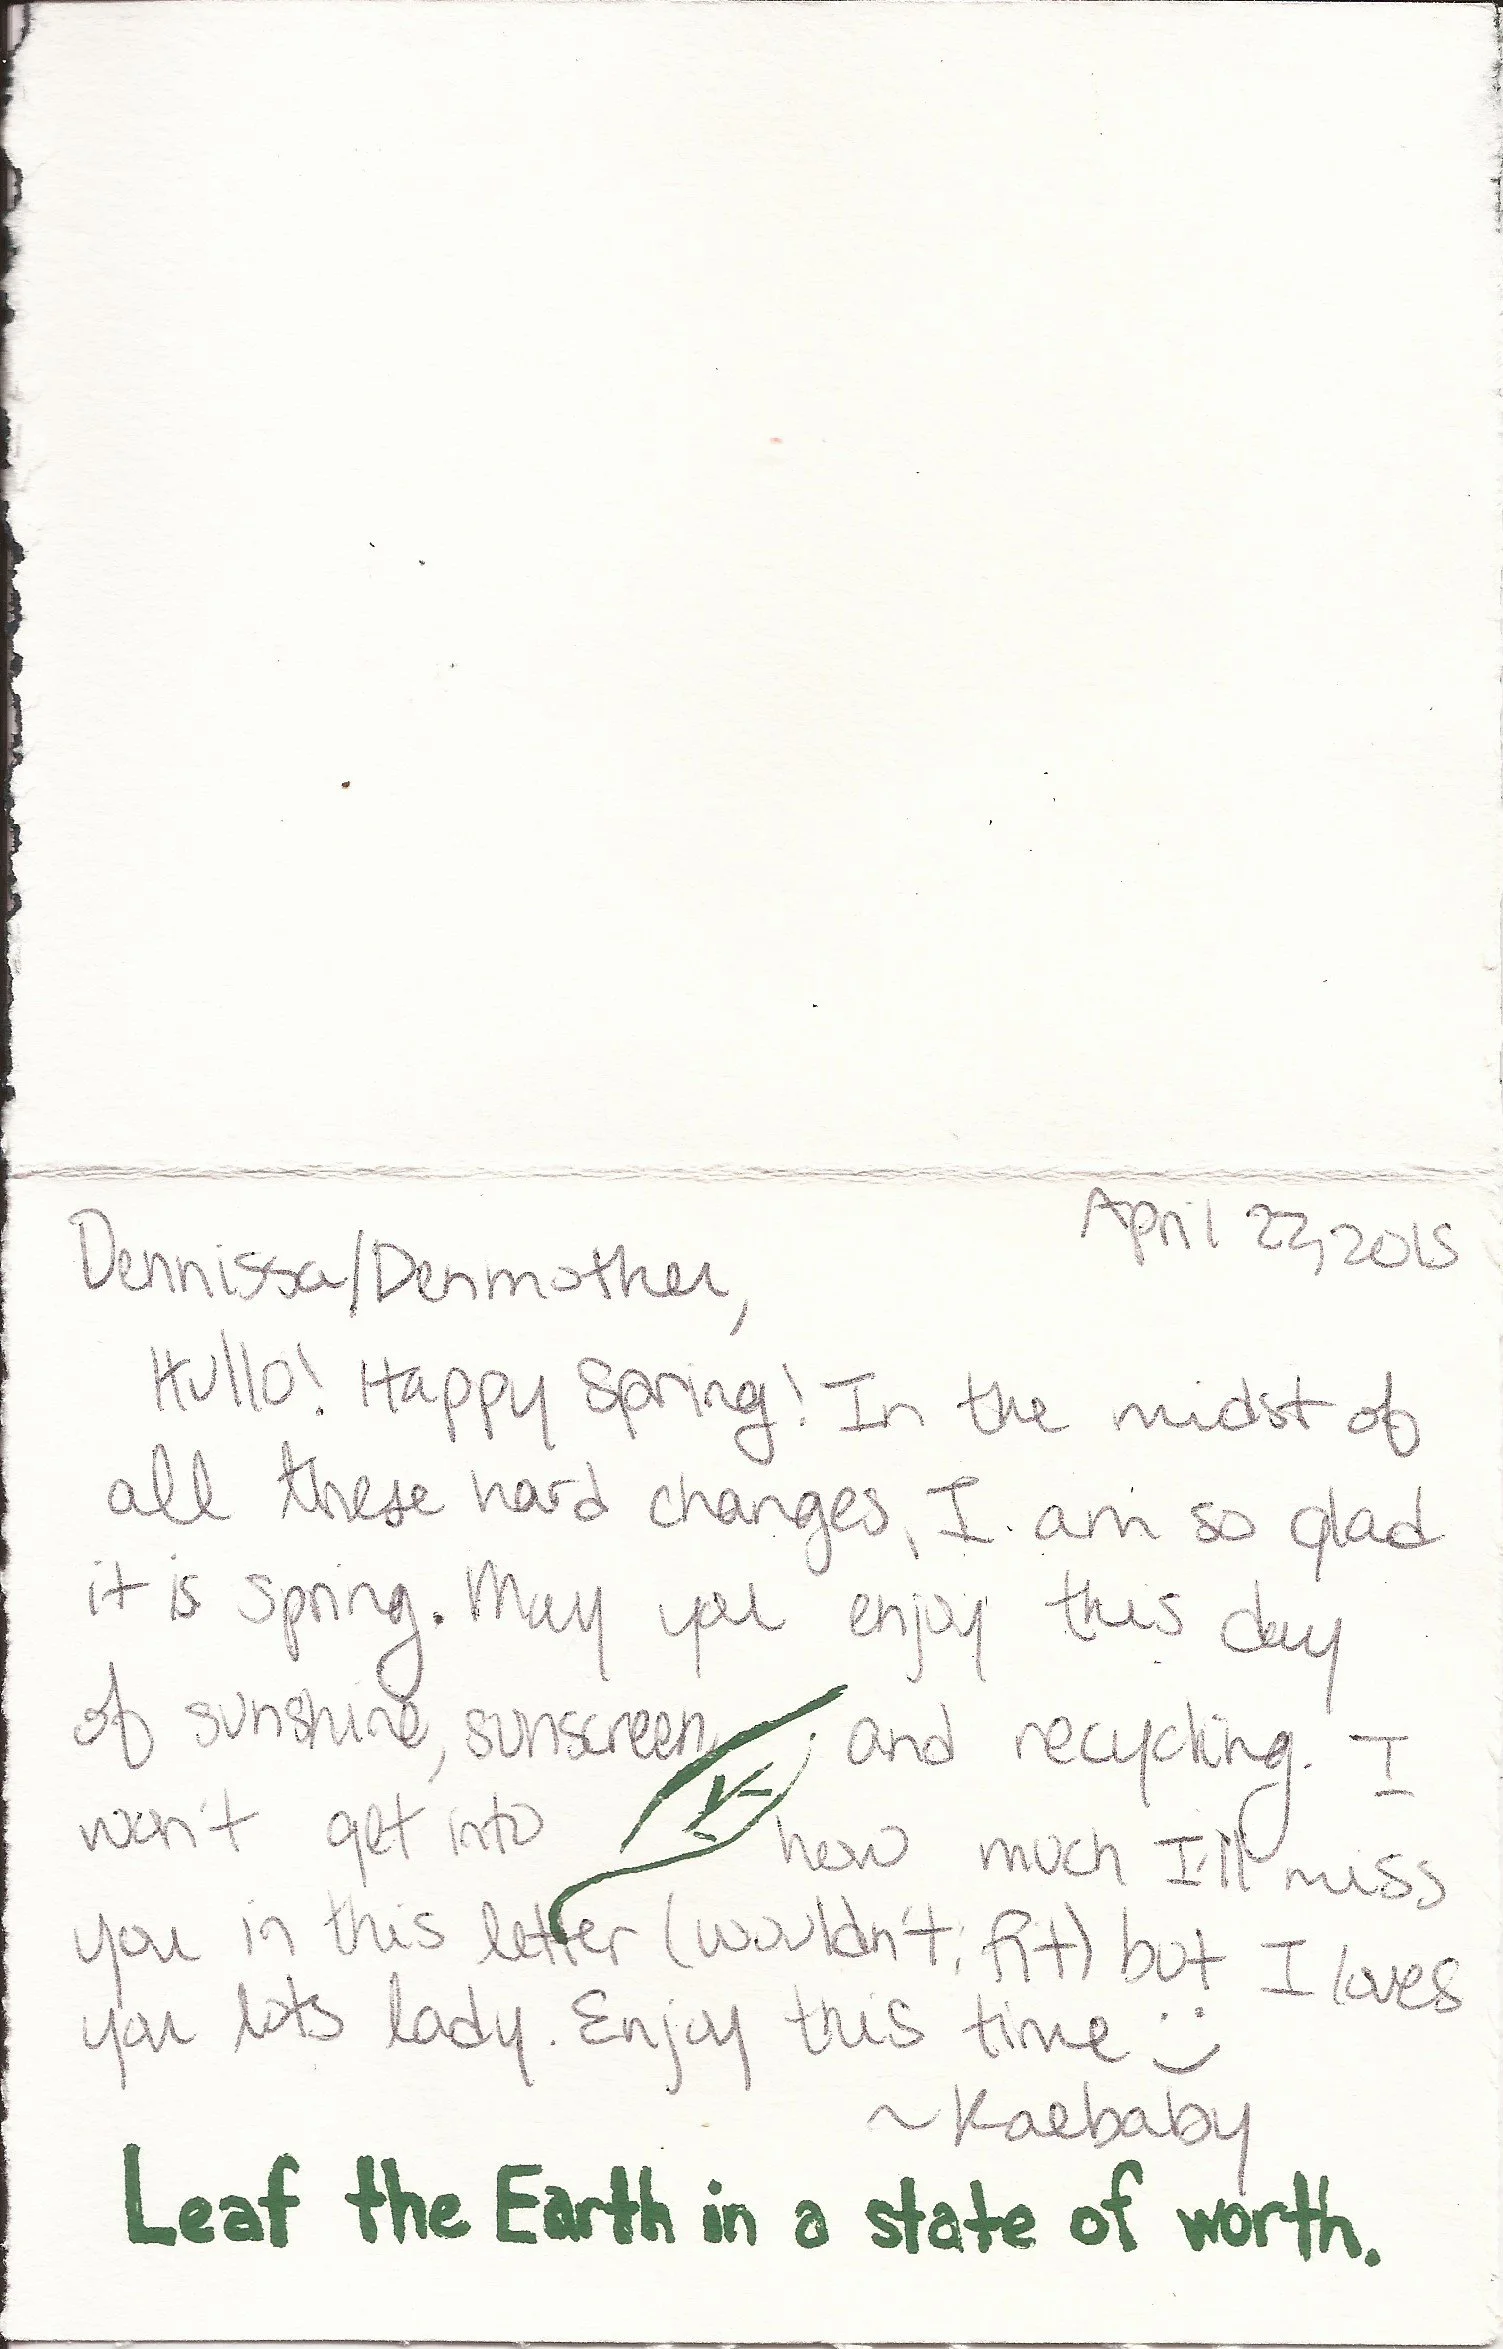 April 22, 2015
Dennissa/Denmother,
Hullo! Happy Spring! In the midst of
all these hard changes, I am so glad
it is spring. May you enjoy this day
of sunshine, sunscreen, and recycling. I
won't get into how much I'll miss
you in this letter (wouldn't fit) but I loves
you lots lady. Enjoy this time :)
~Kaebaby
Leaf the Earth in a state of worth.